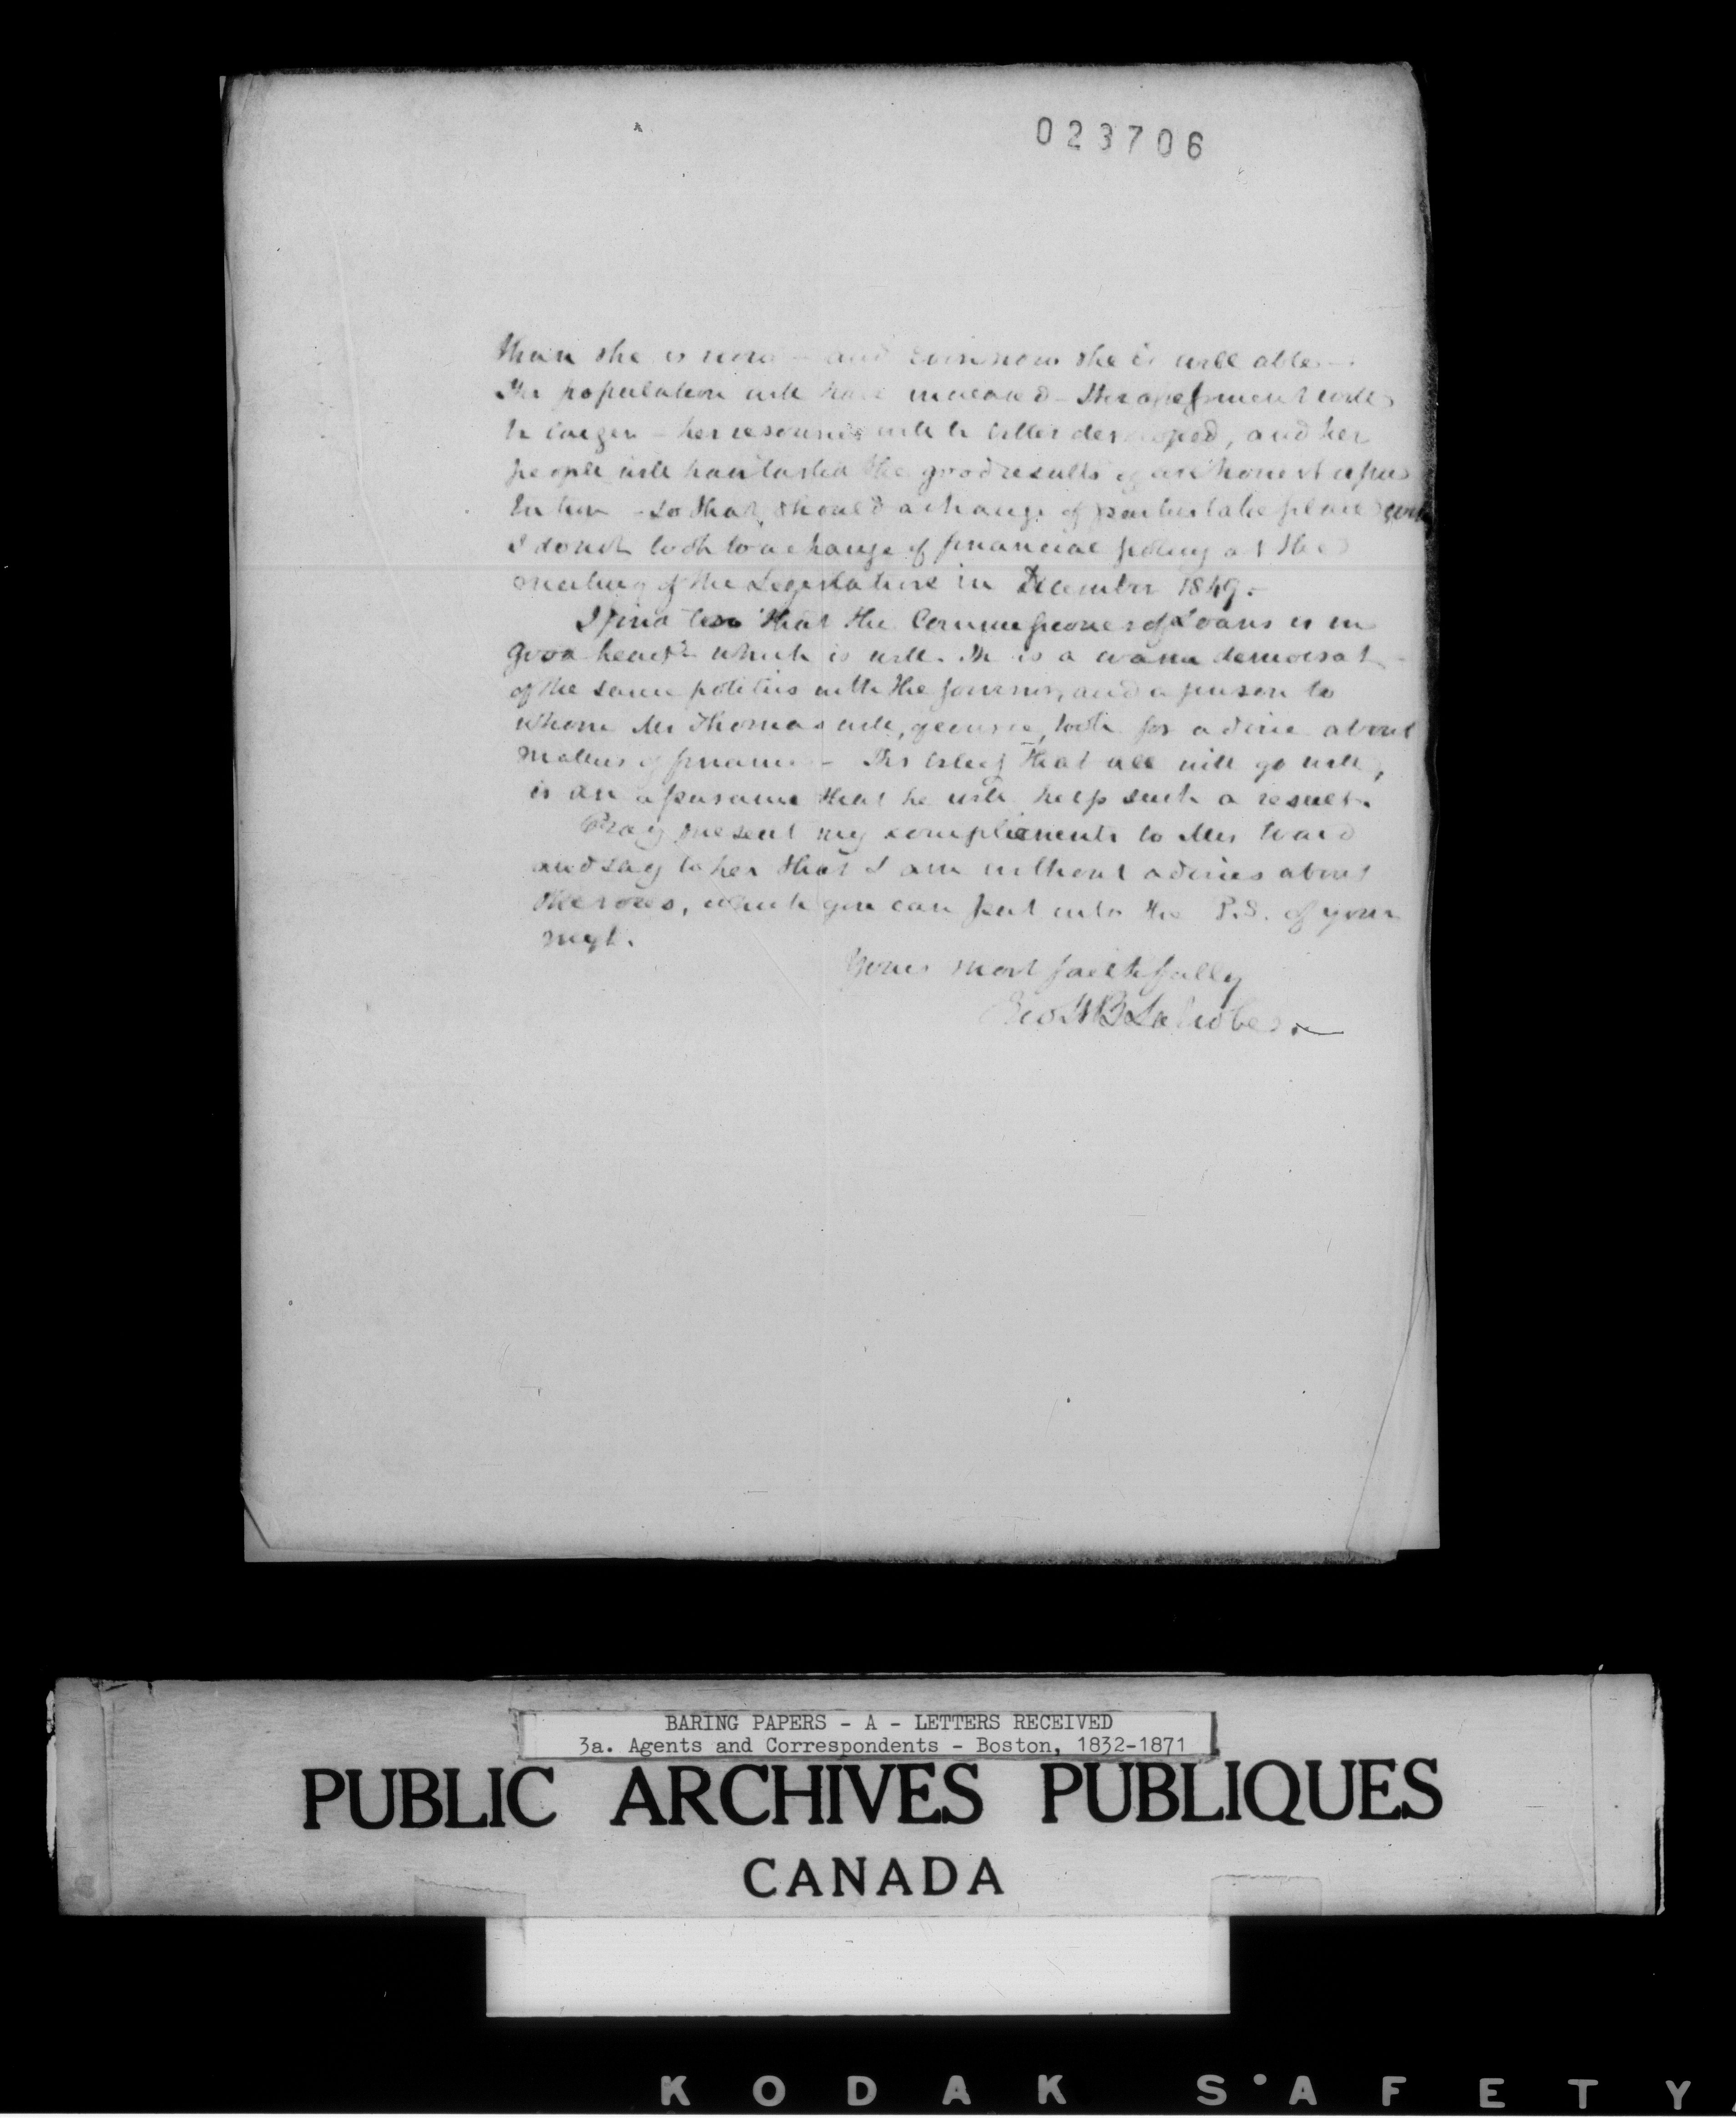 023706
than she is now - and even now she is well able -
Her population will have increased - Her assessment will
be larger - her resources will be better developed, and her
people will have tasted the good results of an honest repu
tation - so that, should a change of parties take place
I do not look to a change of financial policy at the
meeting of the Legislature in December 1849.-
I find too that the Commissioner of Loans is in
good heart - which is well. He is a warm democrat -
of the same politics with the Governor, and a person to
whom Mr Thomas will, of course, look for advice about
matters of finance - His belief that all will go well,
is an assurance that he will help such a result.
Pray present my compliments to Mrs Ward
and say to her that I am without advices about
the roses, which you can put into the P.S. of your
next.
Yours most faithfully
Jno H B Latrobe.
BARING PAPERS - A - LETTERS RECEIVED
3a. Agents and Correspondents - Boston, 1832-1871
PUBLIC ARCHIVES PUBLIQUES
CANADA
KODAK SAFETY